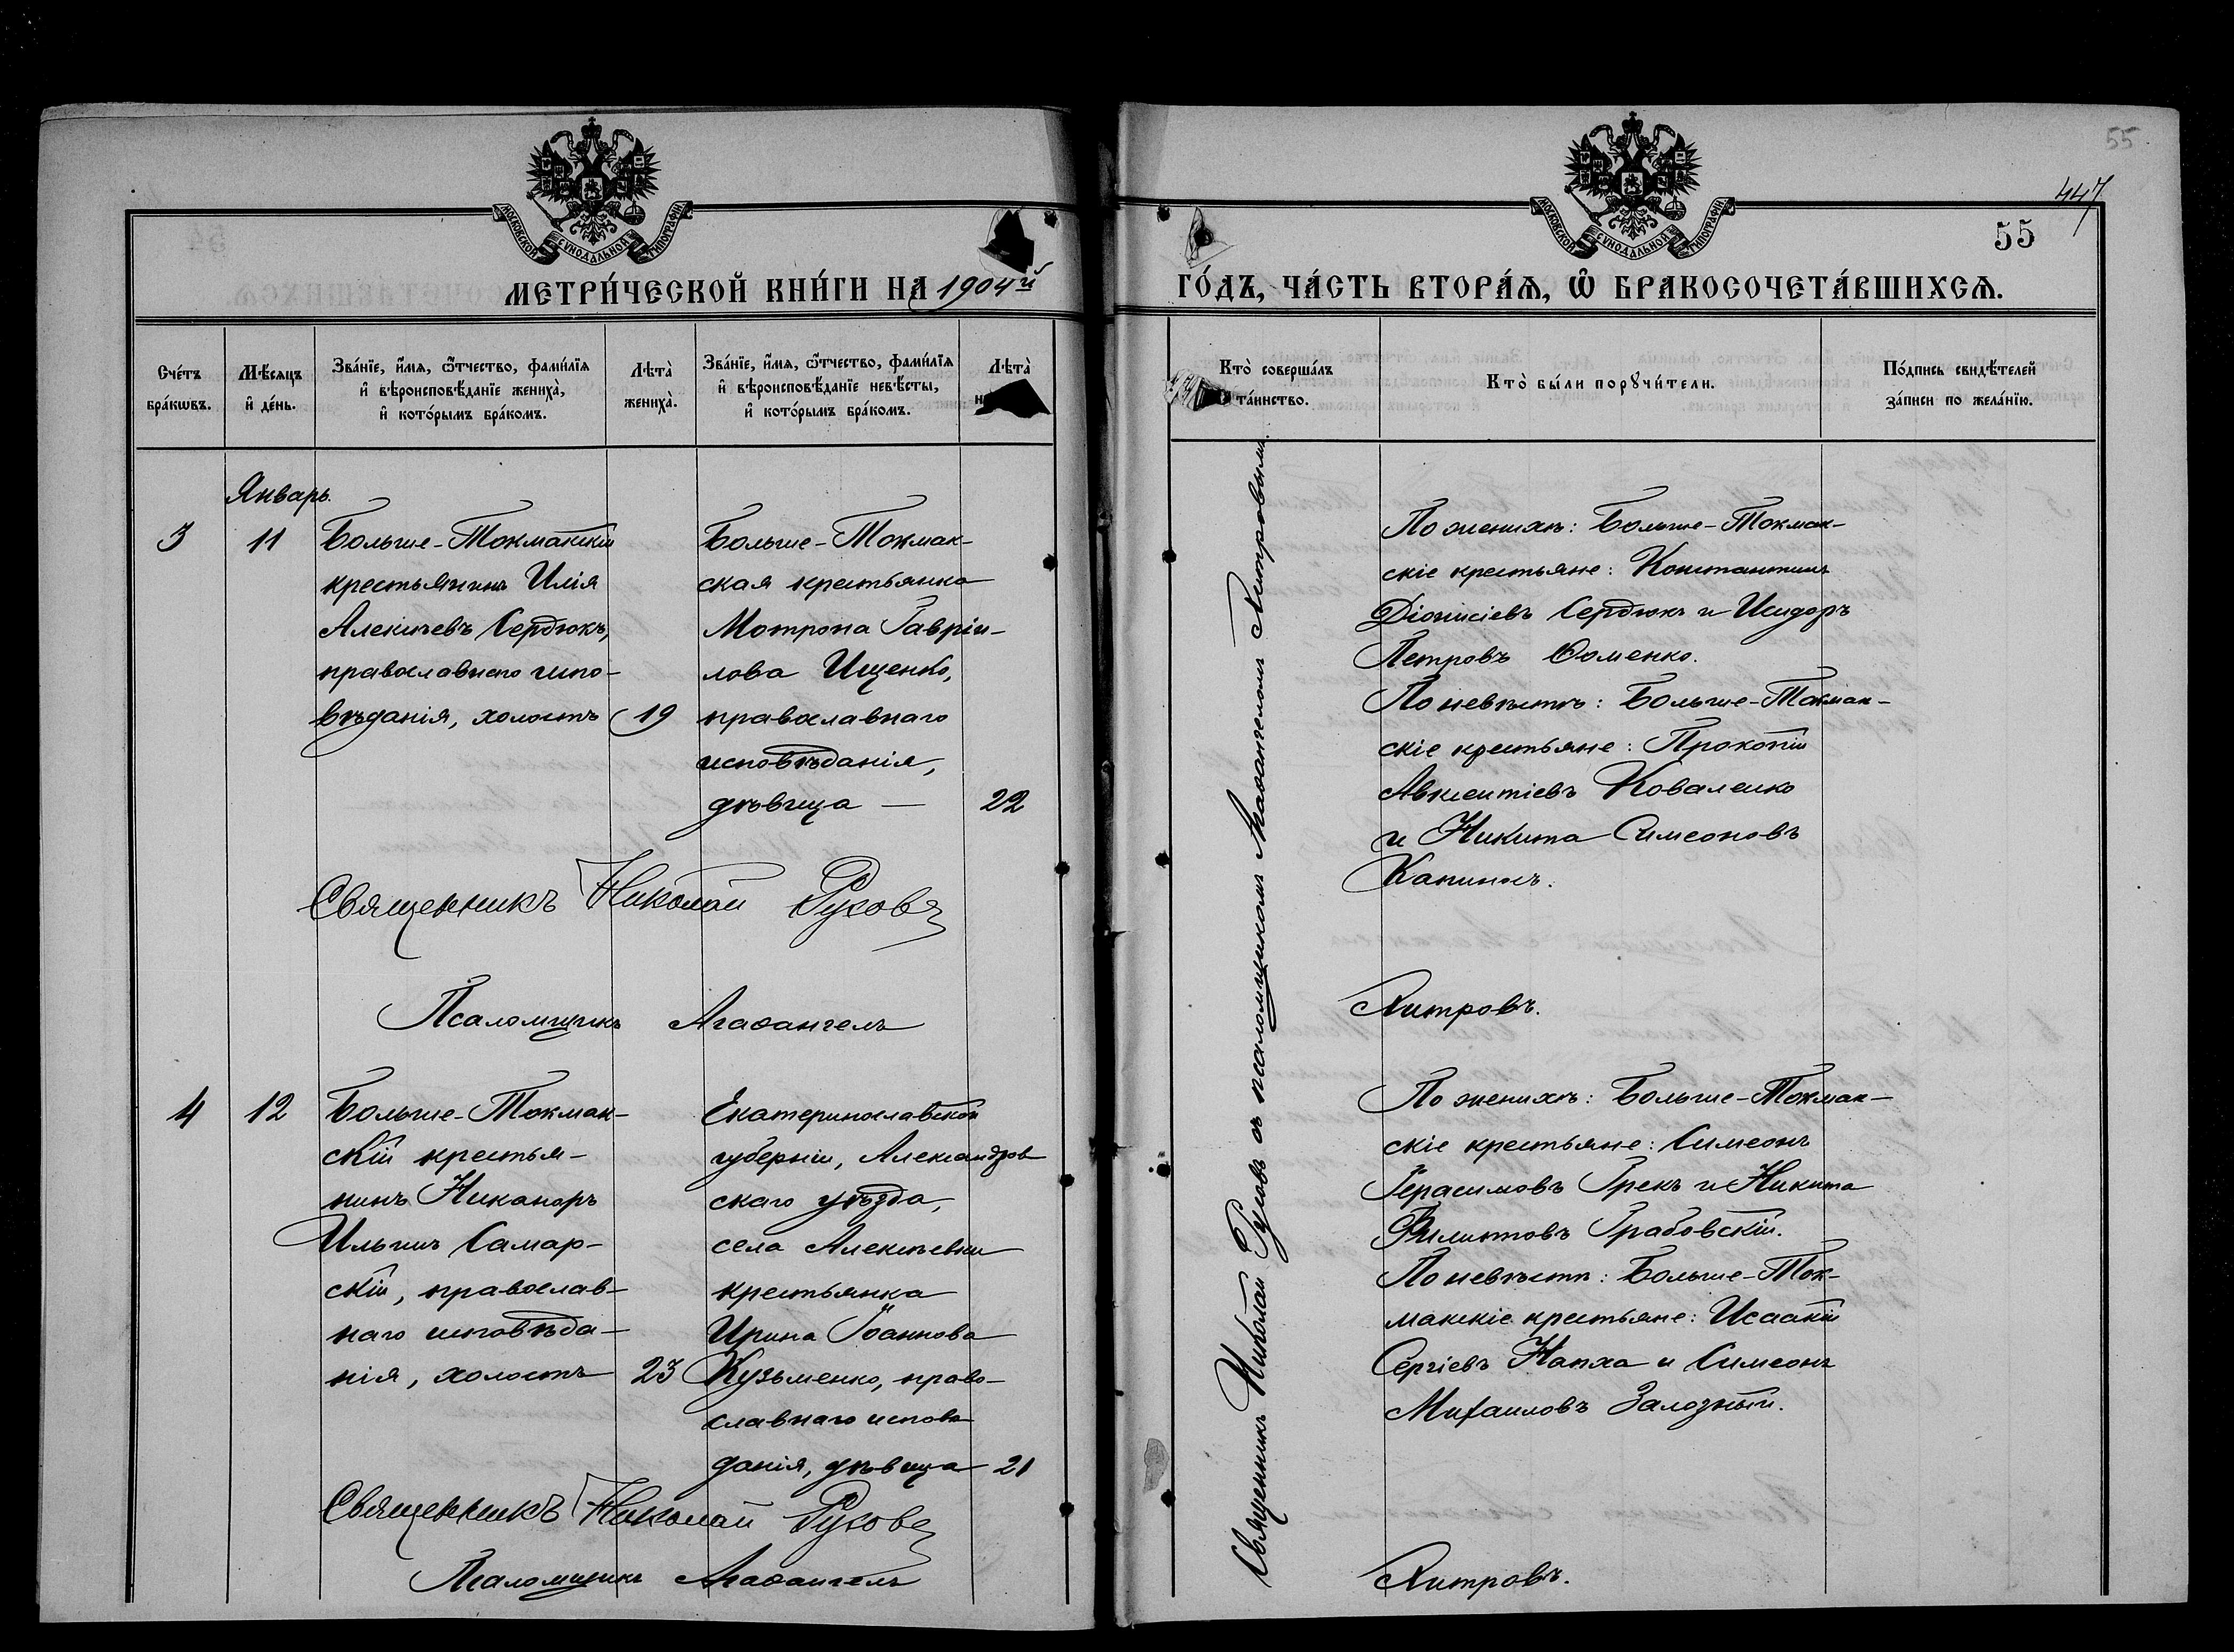 МОСКОВСКОЙ СѴНОДАЛЬНОЙ ТИПОГРАФІИ
МЕТРИ́ЧЕСКОЙ КНИ́ГИ НА 1904й
Сче́тъ бра́кѡвъ.
Мѣ́сяцъ и҆ де́нь.
Зва́нїе, и҆́мя, ѻ҆́тчество, фами́лїя и҆ вѣроисповѣ́данїе жениха̀, и҆ кото́рымъ бра́комъ.
Лѣта̀ жениха̀.
Зва́нїе, и҆́мя, ѻ҆́тчество, фами́лїя и҆ вѣроисповѣ́данїе невѣ́сты, и҆ кото́рымъ бра́комъ.
Лѣта̀
Январь.
3
11
Больше-Токмакскій
крестьянинъ Илія
Алексѣевъ Сердюкъ,
православнаго испо-
вѣданія, холостъ
19
Больше-Токмак-
ская крестьянка
Мотрона Гаврiи-
лова Ищенко,
православнаго
исповѣданія,
дѣвица —
22
Священникъ Николай Русовъ
Псаломщикъ Агаѳангелъ
4
12
Больше-Токмак-
скій крестья-
нинъ Никаноръ
Ильинъ Самар-
скій, православ-
наго исповѣда-
нія, холостъ
23
Екатеринославской
губерніи, Александров
скаго уѣзда,
села Алексѣевки
крестьянка
Ирина Іоаннова
Кузьменко, право-
славнаго исповѣ
данія, дѣвица
21
Священникъ Николай Русовъ
Псаломщикъ Агаѳангелъ
55
447
МОСКОВСКОЙ СѴНОДАЛЬНОЙ ТИПОГРАФІИ
55
ГО́ДЪ, ЧА́СТЬ ВТОРА́Ѧ, Ѽ БРАКОСОЧЕТА́ВШИХСѦ.
Кто̀ соверша́лъ та́инство.
Кто̀ бы́ли порꙋчи́тели.
По́дпись свидѣ́телей за́писи по жела́нїю.
Священникъ Николай Русовъ съ псаломщикомъ Агаѳангеломъ Хитровымъ.
По женихѣ: Больше-Токмак-
скіе крестьяне: Константинъ
Діонисіевъ Сердюкъ и Исидоръ
Петровъ Ѳоменко.
По невѣстѣ: Больше-Токмак-
скіе крестьяне: Прокопій
Авксентіевъ Коваленко
и Никита Симеоновъ
Капинъ.
Хитровъ.
По женихѣ: Больше-Токмак-
скіе крестьяне: Симеонъ
Герасимовъ Грекъ и Никита
Филиповъ Грабовскій.
По невѣстѣ: Больше-Ток-
макскіе крестьяне: Исаакій
Сергіевъ Напха и Симеонъ
Михаиловъ Залозный.
Хитровъ.